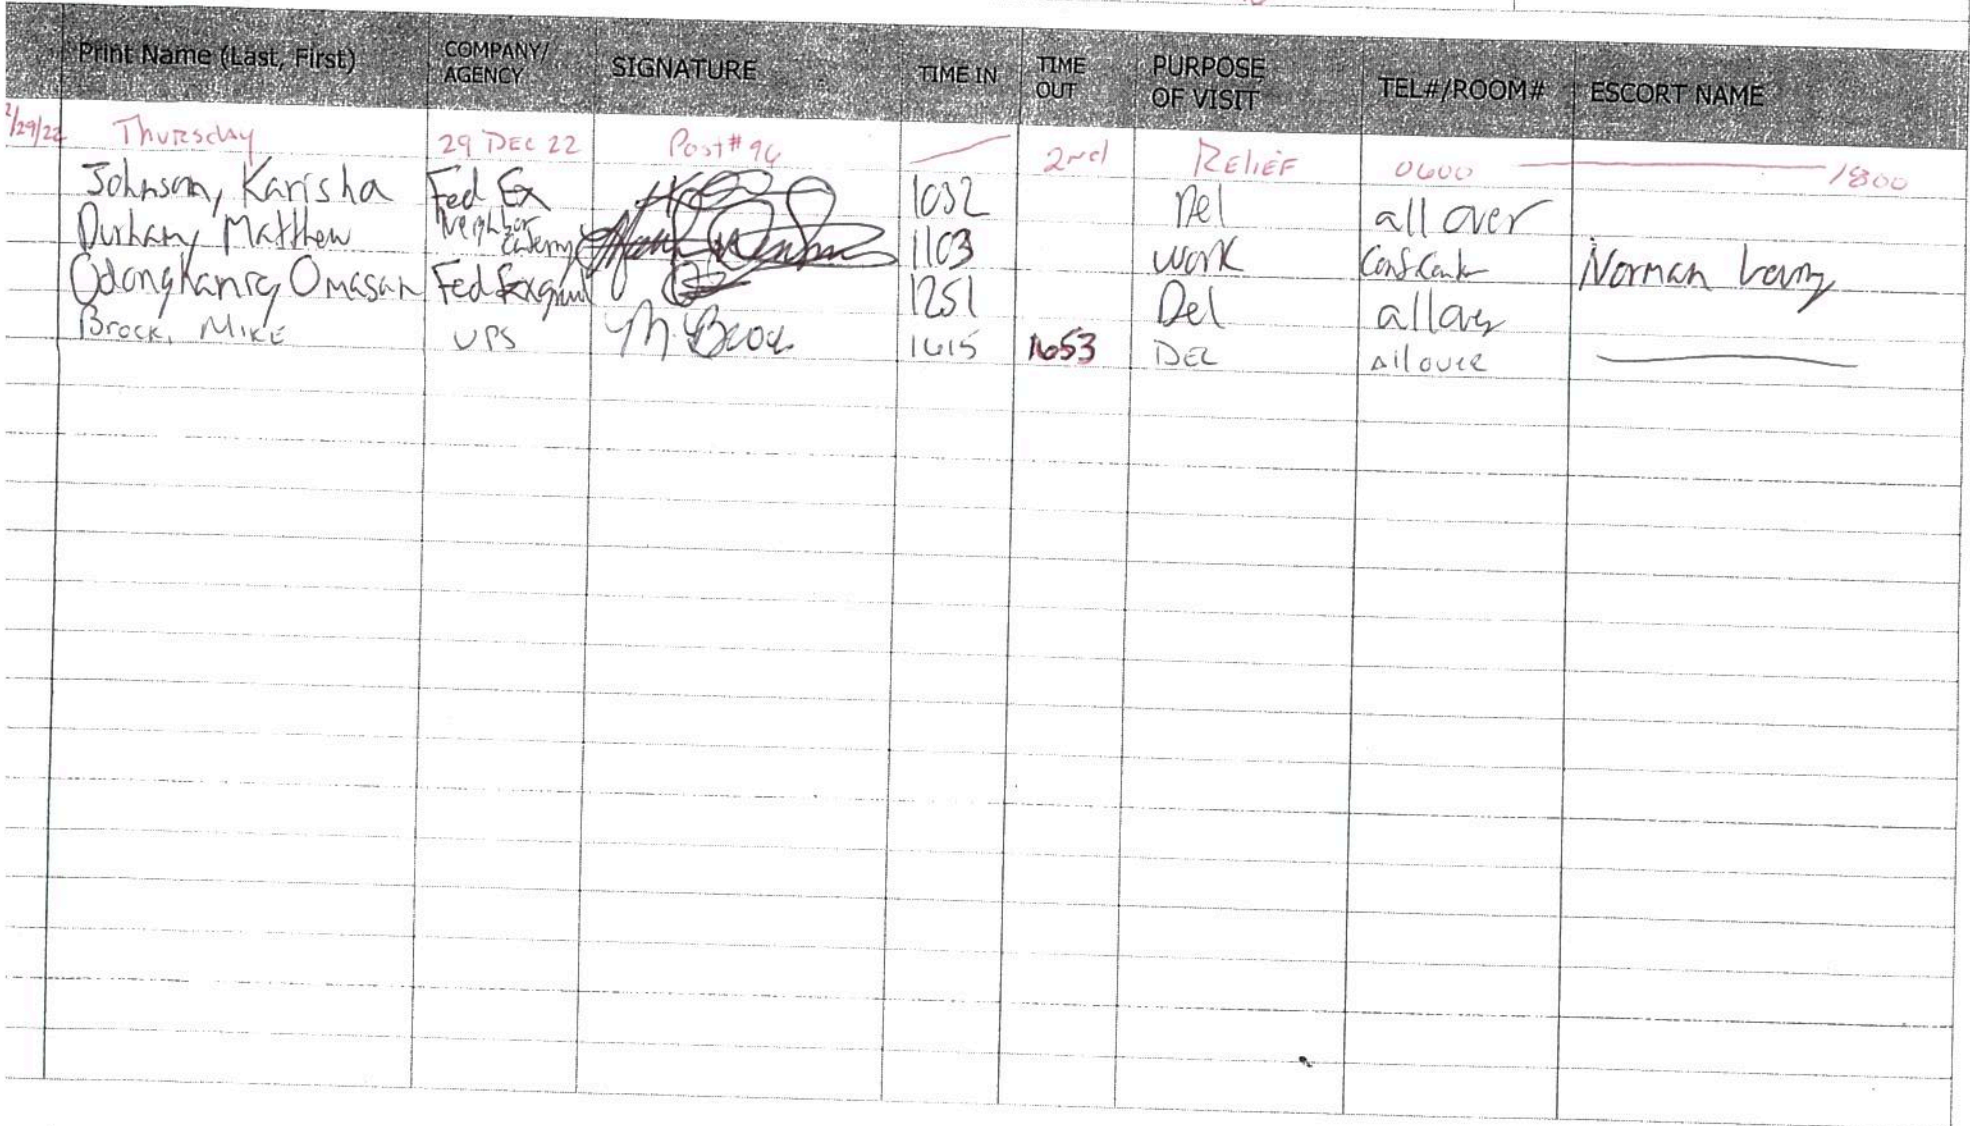 Print Name (Last, First) COMPANY/ AGENCY SIGNATURE TIME IN TIME OUT PURPOSE OF VISIT TEL#/ROOM# ESCORT NAME
/29/22 Thursday 29 DEC 22 Post# 96 2nd RELIEF 0600 1800
Johnson, Karisha Fed Ex 1032 Del all over
Durham, Matthew Neighbor 1103 work Norman
Omasan Fed Ex 1251 Del all over
Brock, MIKE UPS M. Brock 1615 1653 DEL All over